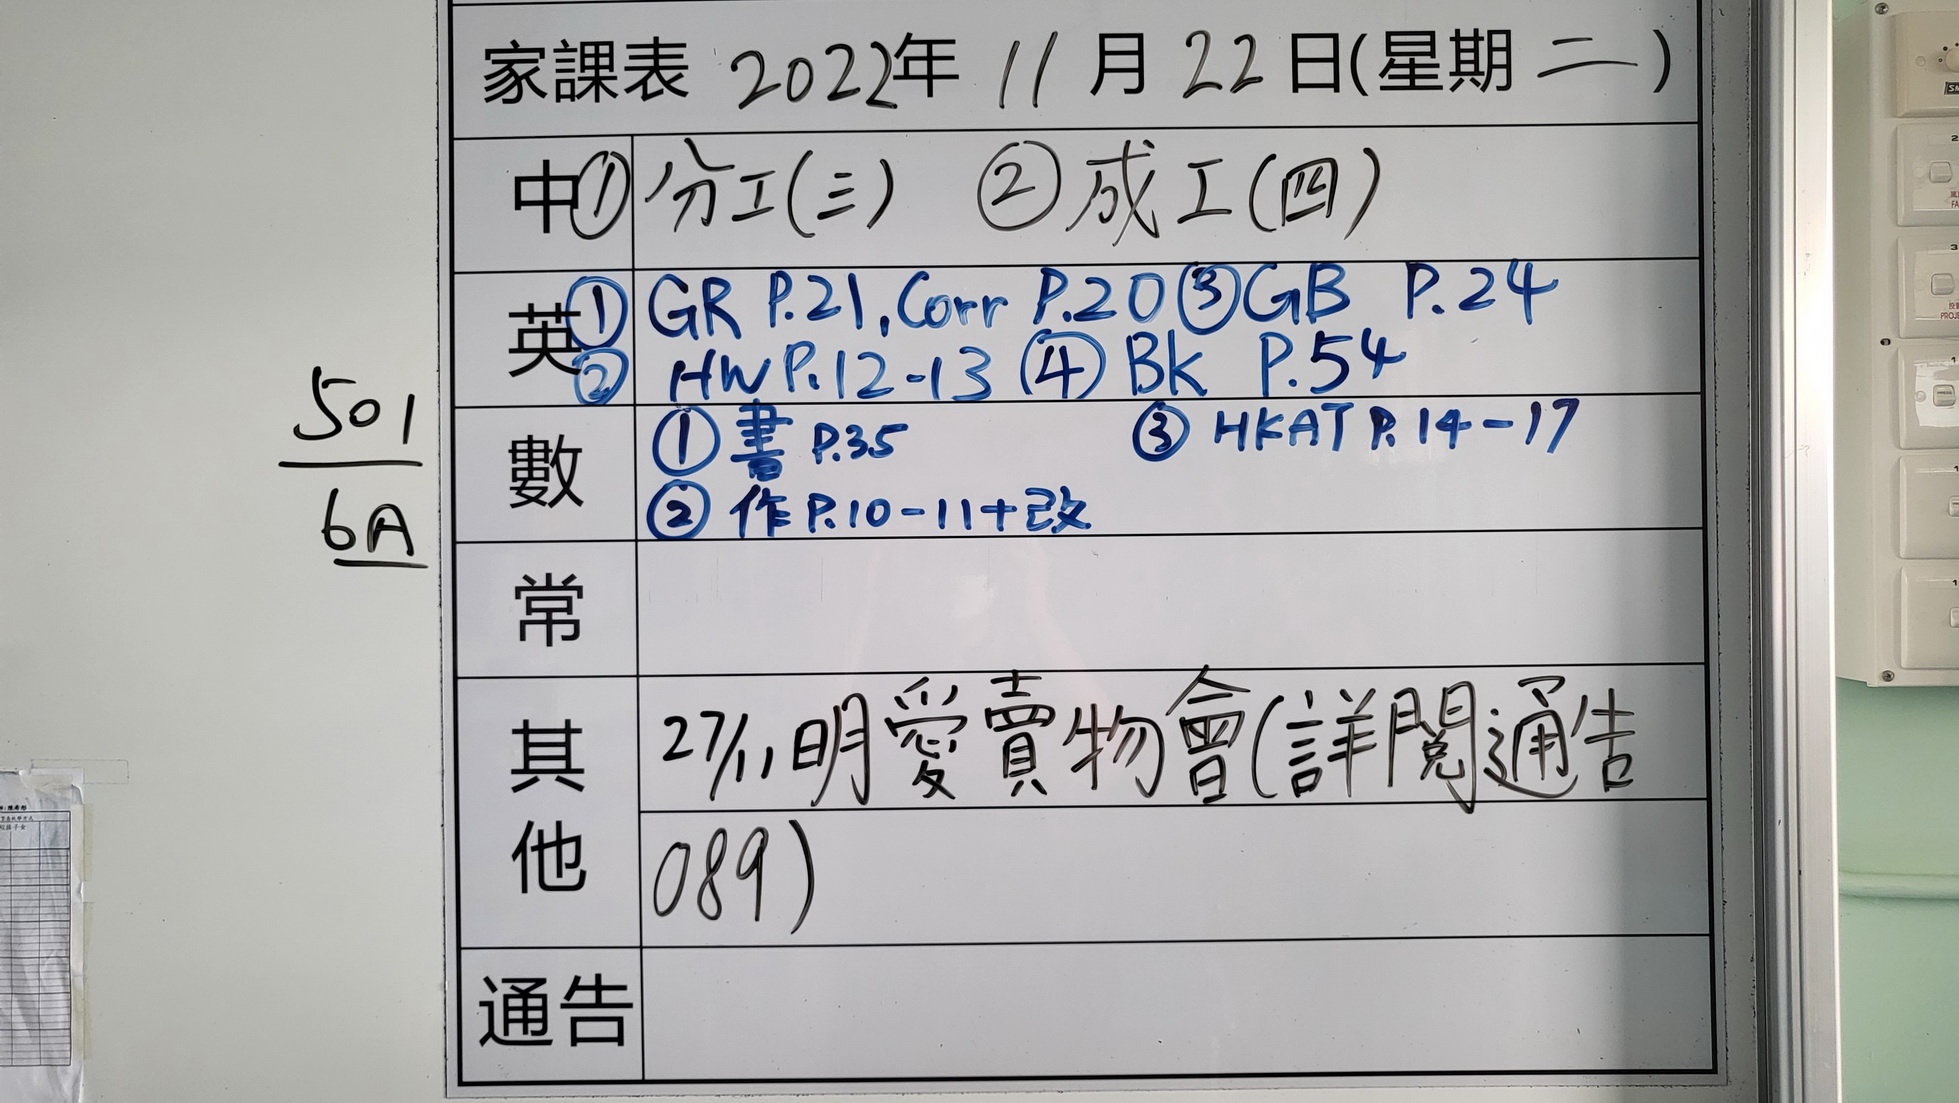 家課表 2022年 11 月 22 日(星期 二 )
中 ① 分工(三) ② 成工(四)
英 ① GR P.21, Corr P.20 ③ GB P.24
② HW P.12-13 ④ BK P.54
501
6A
數 ① 書 P.35 ③ HKAT P.14-17
② 作 P.10-11+改
常
其他
27/11 明愛賣物會(詳閱通告
089)
通告